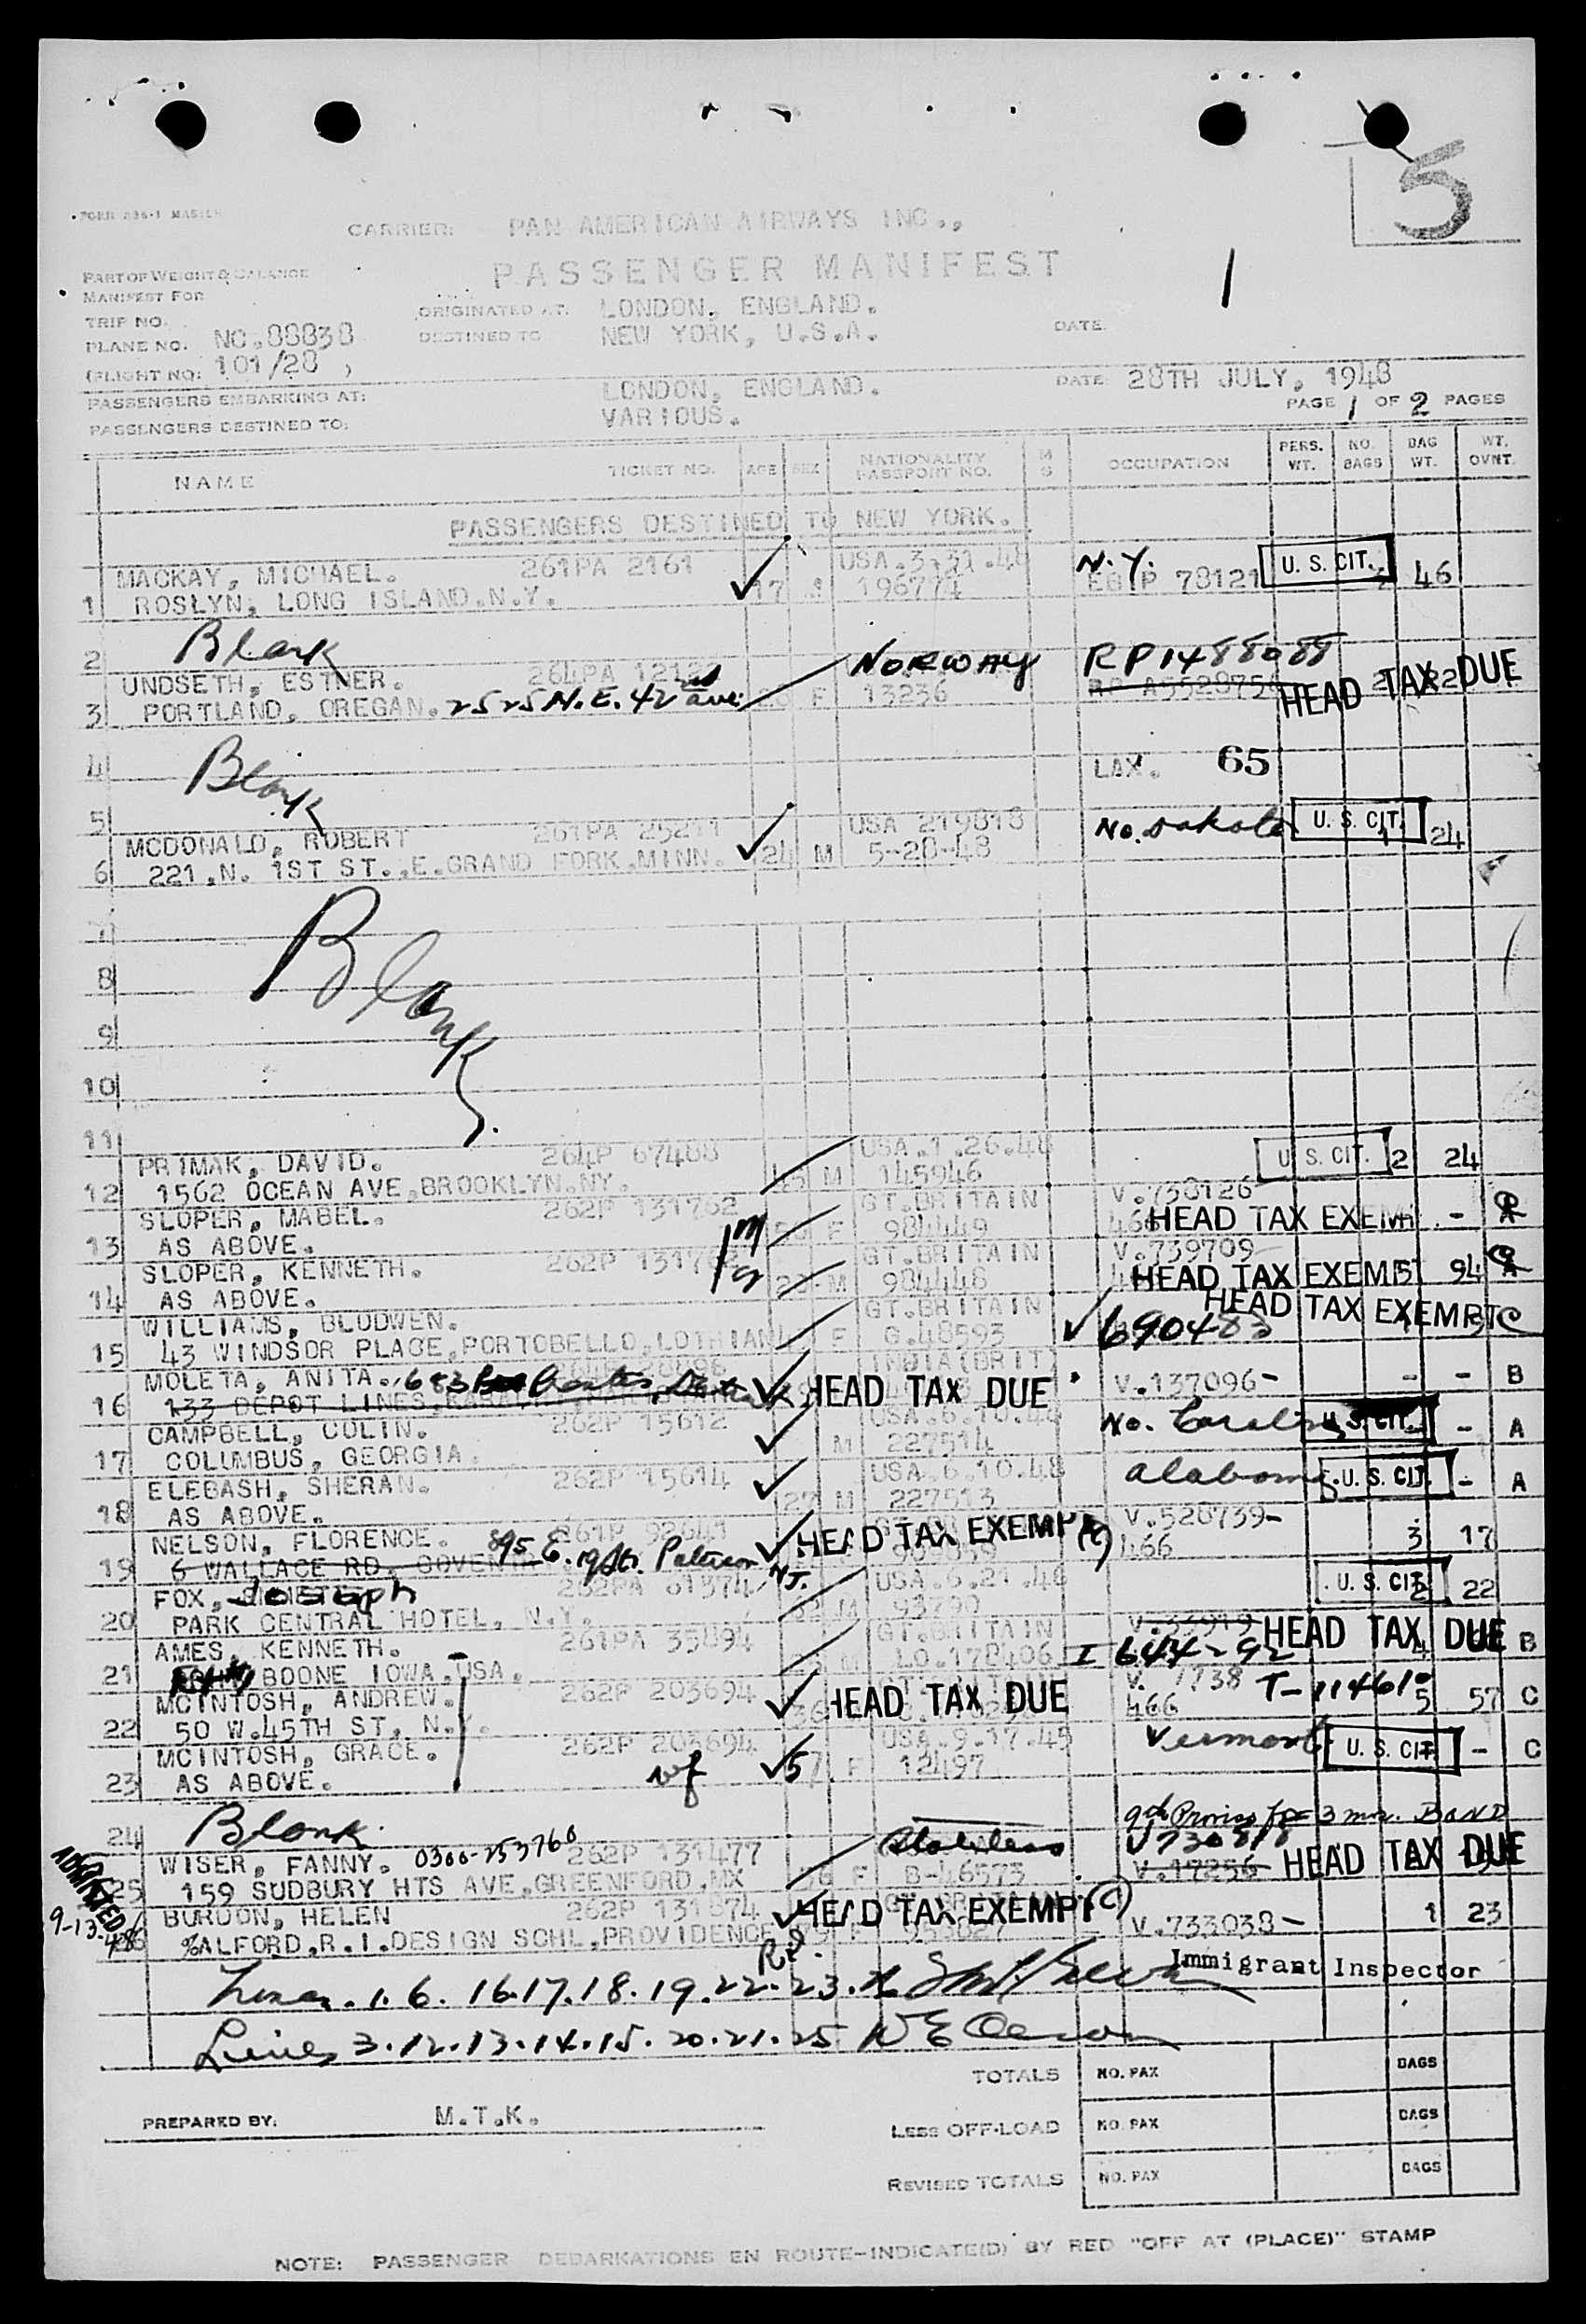 5
FORM
CARRIER: PAN AMERICAN AIRWAYS INC.,
PASSENGER MANIFEST
1
PART OF WEIGHT & BALANCE
MANIFEST FOR
TRIP NO.
ORIGINATED AT: LONDON, ENGLAND.
PLANE NO. NC.88838
DESTINED TO NEW YORK, U.S.A.
DATE
(FLIGHT NO: 101/28 )
LONDON, ENGLAND.
DATE 28TH JULY, 1948
PASSENGERS EMBARKING AT:
PASSENGERS DESTINED TO: VARIOUS.
PAGE 1 OF 2 PAGES
NAME TICKET NO. AGE SEX NATIONALITY PASSPORT NO. M S OCCUPATION PERS. WT. NO. BAGS BAG WT. WT. OVNT.
PASSENGERS DESTINED TO NEW YORK.
MACKAY, MICHAEL. 261PA 2161 USA.3-31.48 N.Y. U. S. CIT.
1 ROSLYN, LONG ISLAND.N.Y. 17 196774 78121 46
2 Blank
UNDSETH, ESTHER. 264PA NORWAY RP1488088
3 PORTLAND, OREGAN. 2525 N.E. 42nd ave. F 13236 HEAD TAX DUE
4 Blank LAX. 65
5
MCDONALD, ROBERT 261PA USA 219818 No. Dakota U. S. CIT.
6 221.N. 1ST ST.,E.GRAND FORK.MINN. 24 M 5-28-48 1 24
7
8 Blank
9
10
11
PRIMAK, DAVID. 264P 67488 USA.1.26.48 U. S. CIT. 2 24
12 1562 OCEAN AVE.BROOKLYN.NY. M 145946
SLOPER, MABEL. 262P 131762 GT.BRITAIN V.738126
13 AS ABOVE. F 984449 HEAD TAX EXEMPT -
SLOPER, KENNETH. 262P 131762 GT.BRITAIN V.739709
14 AS ABOVE. M 984448 HEAD TAX EXEMPT 94
WILLIAMS, BLODWEN. GT.BRITAIN HEAD TAX EXEMPT C
15 43 WINDSOR PLACE,PORTOBELLO,LOTHIAN F G.48593 690483
MOLETA, ANITA. 683 INDIA(BRIT)
16 133 DEPOT LINES, HEAD TAX DUE V.137096- - - B
CAMPBELL, COLIN. 262P 15612 USA.6.10.48 No. Carolina U. S. CIT. - A
17 COLUMBUS, GEORGIA. M 227514
ELEBASH, SHERAN. 262P 15614 USA.6.10.48 Alabama U. S. CIT. - A
18 AS ABOVE. 27 M 227513
NELSON, FLORENCE. 895 E. 19 St. Paterson N.J. 261P HEAD TAX EXEMPT (C) V.520739-
19 6 WALLACE RD. 466 3 17
FOX, Joseph 262PA 61374 USA.6.21.46 U. S. CIT. 2 22
20 PARK CENTRAL HOTEL, N.Y. M 93790
AMES, KENNETH. 261PA 35894 GT.BRITAIN HEAD TAX DUE B
21 BOONE IOWA,USA. M LO.178406 I 644-92
MCINTOSH, ANDREW. 262P 203694 HEAD TAX DUE T-114610
22 50 W.45TH ST, N.Y. 466 5 57 C
MCINTOSH, GRACE. 262P 203694 USA.9.17.45 Vermont U. S. CIT. - C
23 AS ABOVE. wf 57 F 12497
24 Blank 9th Proviso for 3 mos. BOND
WISER, FANNY. 0300-253760 262P 131477 Stateless V730818
25 159 SUDBURY HTS AVE,GREENFORD,MX F B-46573 V.17256 HEAD TAX DUE
ADMITTED 9-13-48
BURDON, HELEN 262P HEAD TAX EXEMPT (C) V.733038- 1 23
26 %ALFORD.R.I.DESIGN SCHL,PROVIDENCE R.I. F
Lines. 1. 6. 16.17.18.19.22.23.26 Immigrant Inspector
Lines 3.12.13.14.15.20.21.25
TOTALS NO. PAX BAGS
PREPARED BY: M.T.K.
LESS OFF-LOAD NO. PAX BAGS
REVISED TOTALS NO. PAX BAGS
NOTE: PASSENGER DEBARKATIONS EN ROUTE-INDICATE(D) BY RED "OFF AT (PLACE)" STAMP